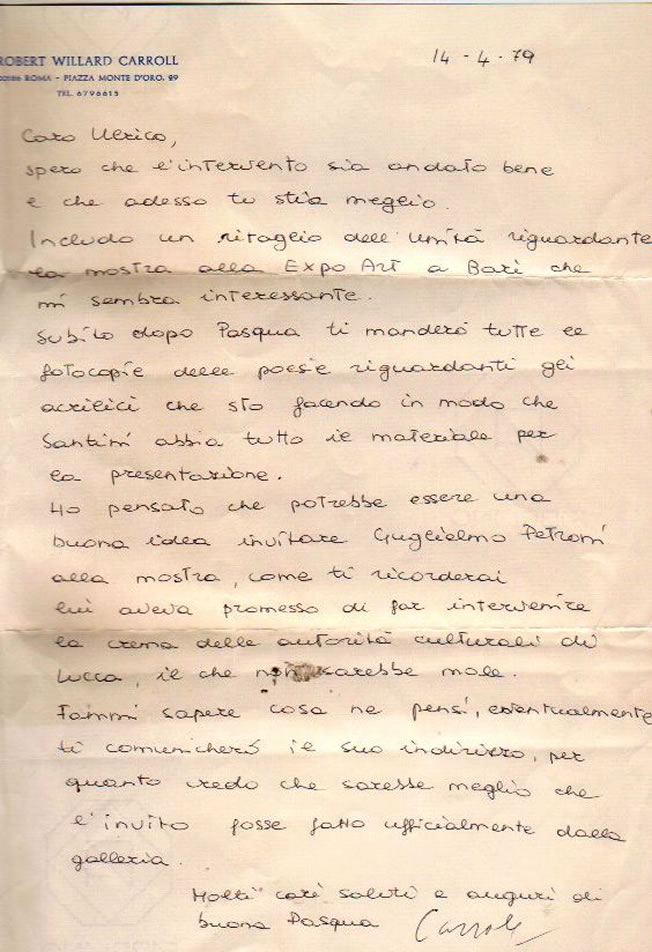 ROBERT WILLARD CARROLL
00186 ROMA - PIAZZA MONTE D'ORO, 29
TEL. 6796613
14 - 4 - 79
Caro Ulrico,
spero che l'intervento sia andato bene
e che adesso tu stia meglio.
Includo un ritaglio dell'Unità riguardante
la mostra alla Expo Art a Bari che
mi sembra interessante.
Subito dopo Pasqua ti manderò tutte le
fotocopie delle poesie riguardanti gli
acrilici che sto facendo in modo che
Santini abbia tutto il materiale per
la presentazione.
Ho pensato che potrebbe essere una
buona idea invitare Guglielmo Petroni
alla mostra, come ti ricorderai
lui aveva promesso di far intervenire
la crema delle autorità culturali di
Lucca, il che non sarebbe male.
Fammi sapere cosa ne pensi, eventualmente
ti comunicherò il suo indirizzo, per
quanto credo che sarebbe meglio che
l'invito fosse fatto ufficialmente dalla
galleria.
Molti cari saluti e auguri di
buona Pasqua Carroll